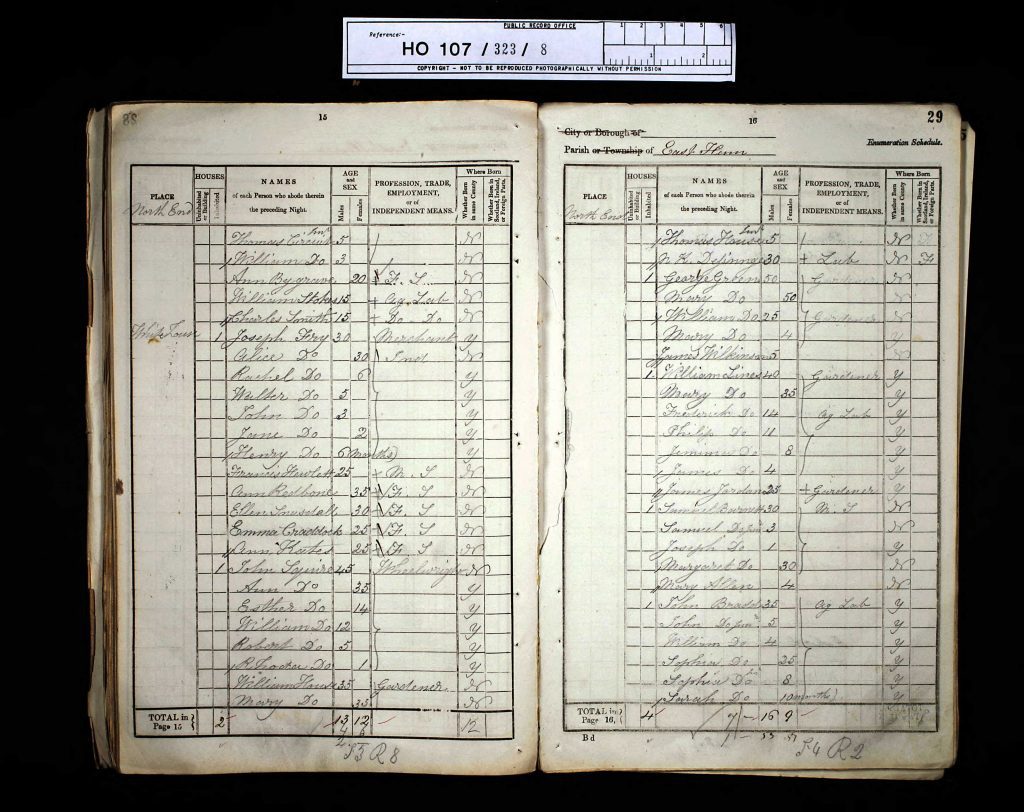 PUBLIC RECORD OFFICE
Reference:-
HO 107 / 323 / 8
1 2 3 4 5 6
1 2
COPYRIGHT - NOT TO BE REPRODUCED PHOTOGRAPHICALLY WITHOUT PERMISSION
15
PLACE
HOUSES
Uninhabited or Building
Inhabited
NAMES
of each Person who abode therein the preceding Night.
AGE and SEX
Males
Females
PROFESSION, TRADE, EMPLOYMENT, or of INDEPENDENT MEANS.
Where Born
Whether Born in same County
Whether Born in Scotland, Ireland, or Foreign Parts.
North End
Thomas Junr 5 N
William Do 3 N
Ann Bygrave 20 F. S. N
William Stokes 15 Ag. Lab N
Charles Smith 15 Do Do N
White House 1 Joseph Fry 30 Merchant Y
Alice Do 30 Ind N
Rachel Do 6 Y
Walter Do 5 Y
John Do 3 Y
Jane Do 2 Y
Henry Do 6 months Y
Francis Hewlett 25 M. S N
Ann Redbone 35 F. S N
Ellen 30 F. S N
Emma Craddock 25 F. S N
Ann Kates 25 F. S N
1 John Squire 45 Wheelwright N
Ann Do 35 Y
Esther Do 14 Y
William Do 12 Y
Robert Do 5 Y
Do 1 Y
William House 35 Gardener N
Mary Do 35 N
TOTAL in Page 15 2 13 12 12
S3 R8
16
29
City or Borough of
Parish or Township of East Ham
Enumeration Schedule.
PLACE
HOUSES
Uninhabited or Building
Inhabited
NAMES
of each Person who abode therein the preceding Night.
AGE and SEX
Males
Females
PROFESSION, TRADE, EMPLOYMENT, or of INDEPENDENT MEANS.
Where Born
Whether Born in same County
Whether Born in Scotland, Ireland, or Foreign Parts.
North End
Thomas House Junr 5 N
30 Lab N F
1 George Green 50 Gardener N
Mary Do 50 N
William Do 25 Gardener N
Mary Do 4 Y
James Wilkinson 5 N
1 William Lines 40 Gardener Y
Mary Do 35 Y
Frederick Do 14 Ag Lab Y
Philip Do 11 Y
Jemima Do 8 Y
James Do 4 Y
James Jordan 25 Gardener Y
1 Samuel 30 M. S N
Samuel Do junr 3 N
Joseph Do 1 Y
Margaret Do 30 N
Mary Allen 4 N
1 John 35 Ag Lab Y
John Do junr 5 Y
William Do 4 Y
Sophia Do 25 Y
Sophia Do 8 Y
Sarah Do 10 months Y
TOTAL in Page 16, 4 16 9
Bd
S4 R2